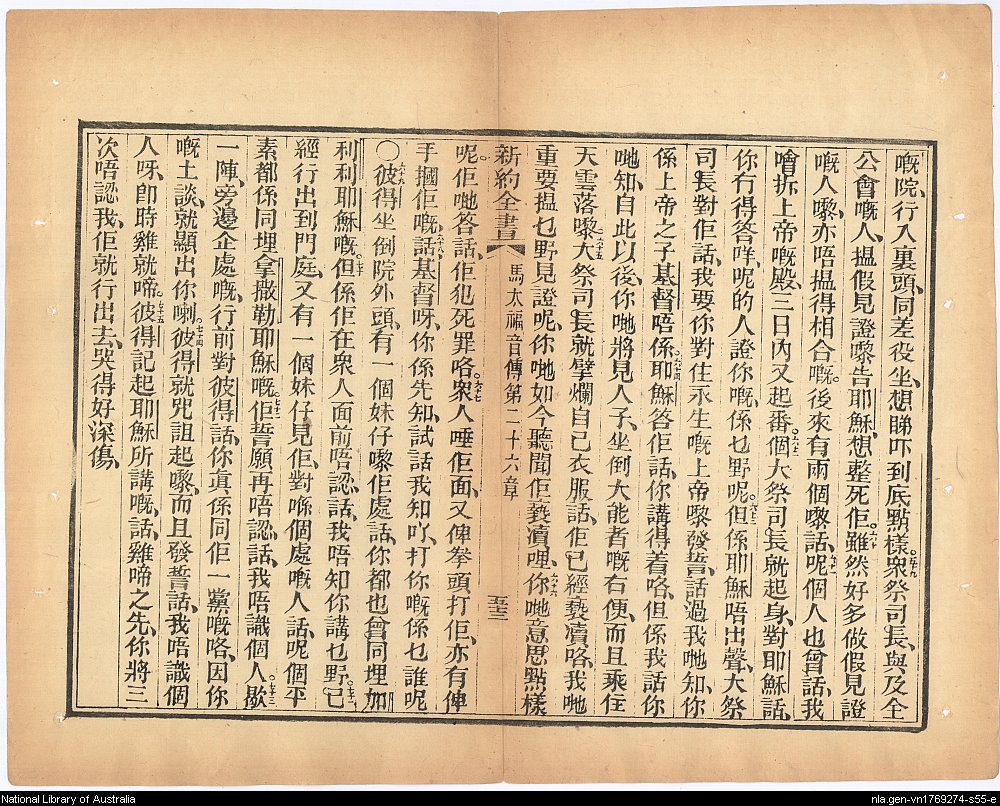 嘅院、行入裏頭、同差役坐、想睇吓到底點樣。五十九衆祭司長、與及全
公會嘅人、搵假見證嚟告耶穌、想整死佢。六十雖然好多做假見證
嘅人嚟、亦唔搵得相合嘅。後來有兩個嚟話、六十一呢個人也曾話、我
噲拆上帝嘅殿、三日內又起番。六十二個大祭司長就起身、對耶穌話、
你冇得答咩、呢的人證你嘅、係乜野呢。六十三但係耶穌唔出聲、大祭
司長對佢話、我要你對住永生嘅上帝嚟發誓、話過我哋知、你
係上帝之子基督唔係。六十四耶穌答佢話、你講得着咯、但係我話你
哋知、自此以後、你哋將見人子、坐倒大能者嘅右便、而且乘住
天雲落嚟。六十五大祭司長就擘爛自己衣服話、佢已經褻瀆咯、我哋
重要搵乜野見證呢、你哋如今聽聞佢褻瀆哩、六十六你哋意思點樣
新約全書 馬太福音傳第二十六章 五十三
呢。佢哋答話、佢犯死罪咯。六十七衆人唾佢面、又俾拳頭打佢、亦有俾
手摑佢嘅、六十八話、基督呀、你係先知、試話我知吖、打你嘅係乜誰呢
〇六十九彼得坐倒院外頭、有一個妹仔嚟佢處話、你都也曾同埋加
利利耶穌嘅。七十但係佢在衆人面前唔認話、我唔知你講乜野。七十一已
經行出到門庭、又有一個妹仔見佢、對喺個處嘅人話、呢個平
素都係同埋拿撒勒耶穌嘅。七十二佢誓願、再唔認、話、我唔識個人。七十三歇
一陣、旁邊企處嘅、行前對彼得話、你眞係同佢一黨嘅咯、因你
嘅土談、就顯出你喇。七十四彼得就咒詛起嚟、而且發誓話、我唔識個
人呀、卽時雞就啼。七十五彼得記起耶穌所講嘅、話、雞啼之先、你將三
次唔認我、佢就行出去、哭得好深傷、
National Library of Australia
nla.gen-vn1769274-s55-e